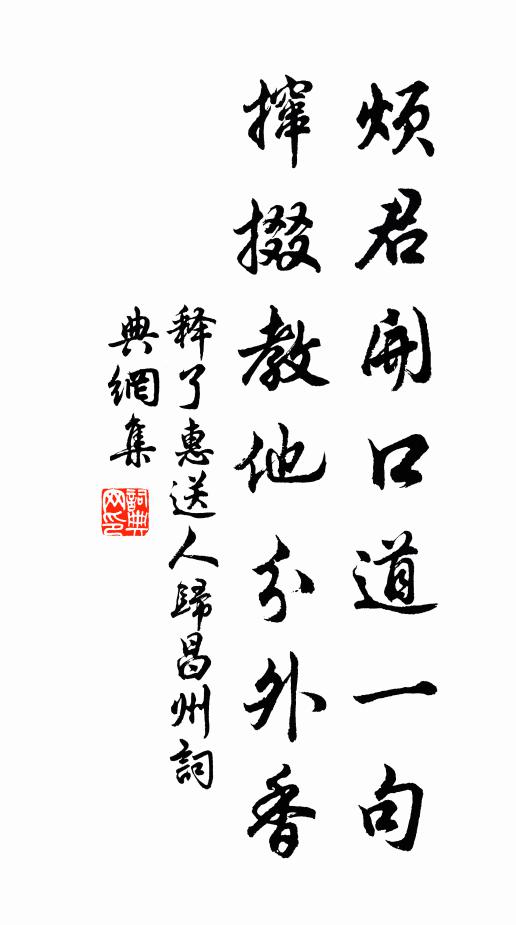 烦君開口道一句
撺掇教他分外香
释了惠送人歸昌州詞
典網集
詞典
网印